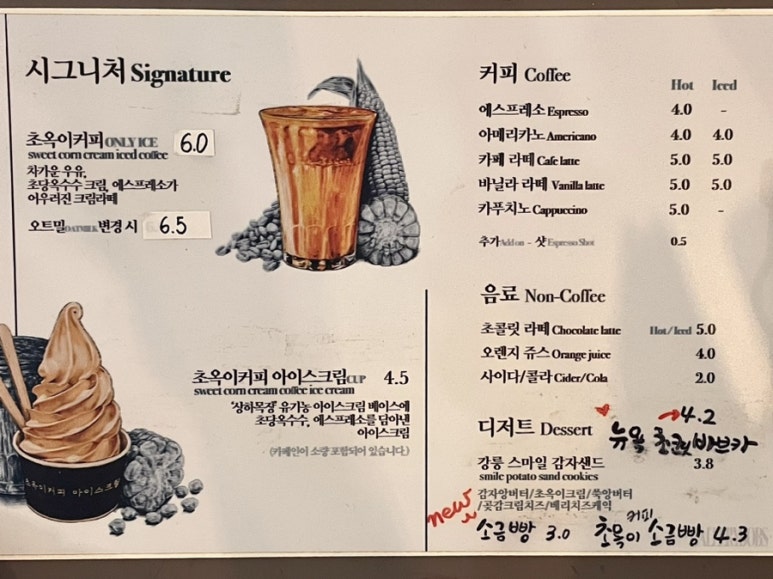 시그니처 Signature
초옥이커피 ONLY ICE 6.0
sweet corn cream iced coffee
차가운 우유,
초당옥수수 크림, 에스프레소가
어우러진 크림라떼
오트밀 OATMILK 변경 시 6.5
초옥이커피 아이스크림 CUP 4.5
sweet corn cream coffee ice cream
'상하목장' 유기농 아이스크림 베이스에
초당옥수수, 에스프레소를 담아낸
아이스크림
(카페인이 소량 포함되어 있습니다.)
초옥이커피 아이스크림
커피 Coffee
Hot Iced
에스프레소 Espresso 4.0 -
아메리카노 Americano 4.0 4.0
카페 라떼 Cafe latte 5.0 5.0
바닐라 라떼 Vanilla latte 5.0 5.0
카푸치노 Cappuccino 5.0 -
추가 Add on - 샷 Espresso Shot 0.5
음료 Non-Coffee
초콜릿 라떼 Chocolate latte Hot/Iced 5.0
오렌지 쥬스 Orange juice 4.0
사이다/콜라 Cider/Cola 2.0
디저트 Dessert
뉴욕 초코릿 바브카 4.2
강릉 스마일 감자샌드 3.8
smile potato sand cookies
감자앙버터/초옥이크림/쑥앙버터
/곶감크림치즈/베리치즈케익
new
소금빵 3.0 초옥이 커피 소금빵 4.3